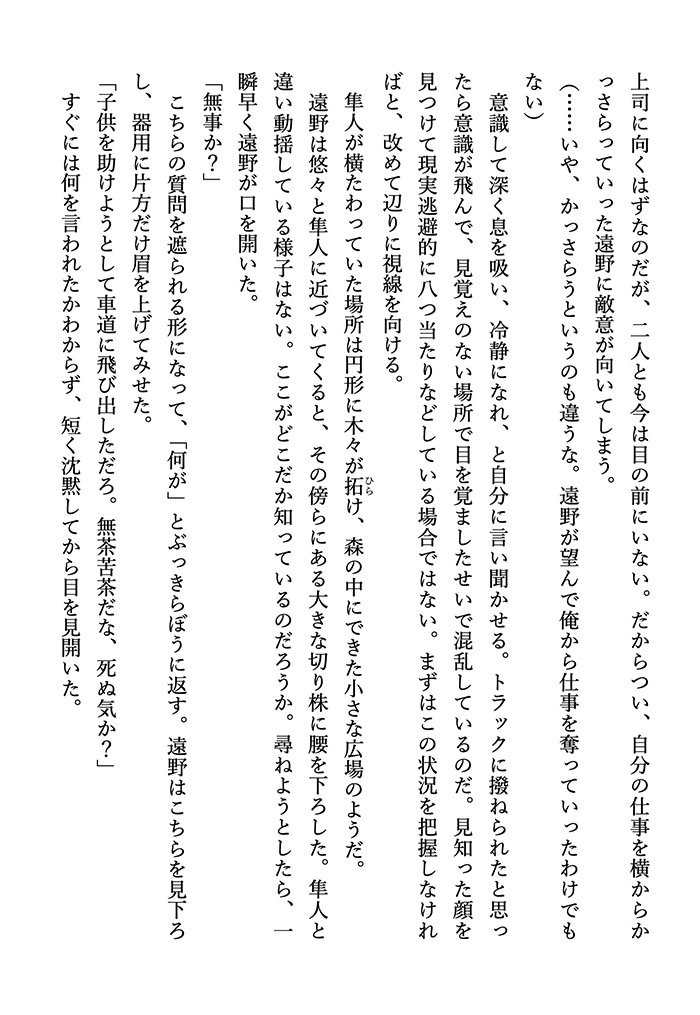 上司に向くはずなのだが、二人とも今は目の前にいない。だからつい、自分の仕事を横からか
っさらっていった遠野に敵意が向いてしまう。
（……いや、かっさらうというのも違うな。遠野が望んで俺から仕事を奪っていったわけでも
ない）
　意識して深く息を吸い、冷静になれ、と自分に言い聞かせる。トラックに撥ねられたと思っ
たら意識が飛んで、見覚えのない場所で目を覚ましたせいで混乱しているのだ。見知った顔を
見つけて現実逃避的に八つ当たりなどしている場合ではない。まずはこの状況を把握しなけれ
ばと、改めて辺りに視線を向ける。
　隼人が横たわっていた場所は円形に木々が拓ひらけ、森の中にできた小さな広場のようだ。
　遠野は悠々と隼人に近づいてくると、その傍らにある大きな切り株に腰を下ろした。隼人と
違い動揺している様子はない。ここがどこだか知っているのだろうか。尋ねようとしたら、一
瞬早く遠野が口を開いた。
「無事か？」
　こちらの質問を遮られる形になって、「何が」とぶっきらぼうに返す。遠野はこちらを見下ろ
し、器用に片方だけ眉を上げてみせた。
「子供を助けようとして車道に飛び出しただろ。無茶苦茶だな、死ぬ気か？」
　すぐには何を言われたかわからず、短く沈黙してから目を見開いた。